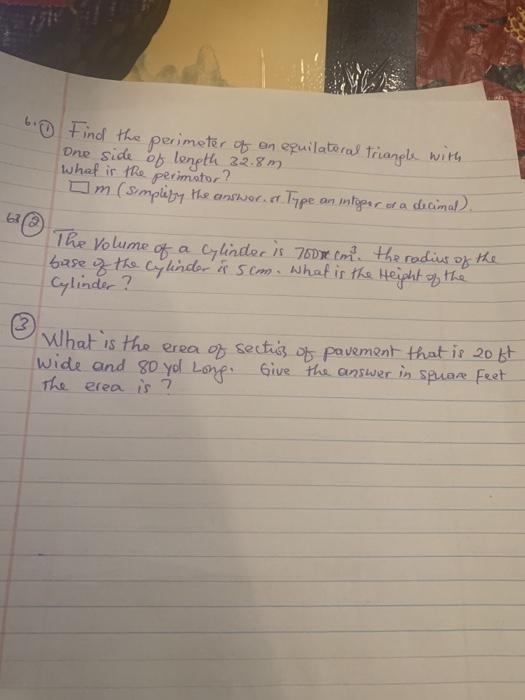 6. ① Find the perimeter of an equilateral triangle with
one side of length 32.8m
What is the perimeter?
□ m (simplify the answer. Type an integer or a decimal).
②
The volume of a cylinder is 750π cm³. the radius of the
base of the cylinder is 5 cm. What is the Height of the
Cylinder?
③ What is the erea of section of pavement that is 20 ft
wide and 80 yd Long. Give the answer in square Feet
The erea is?